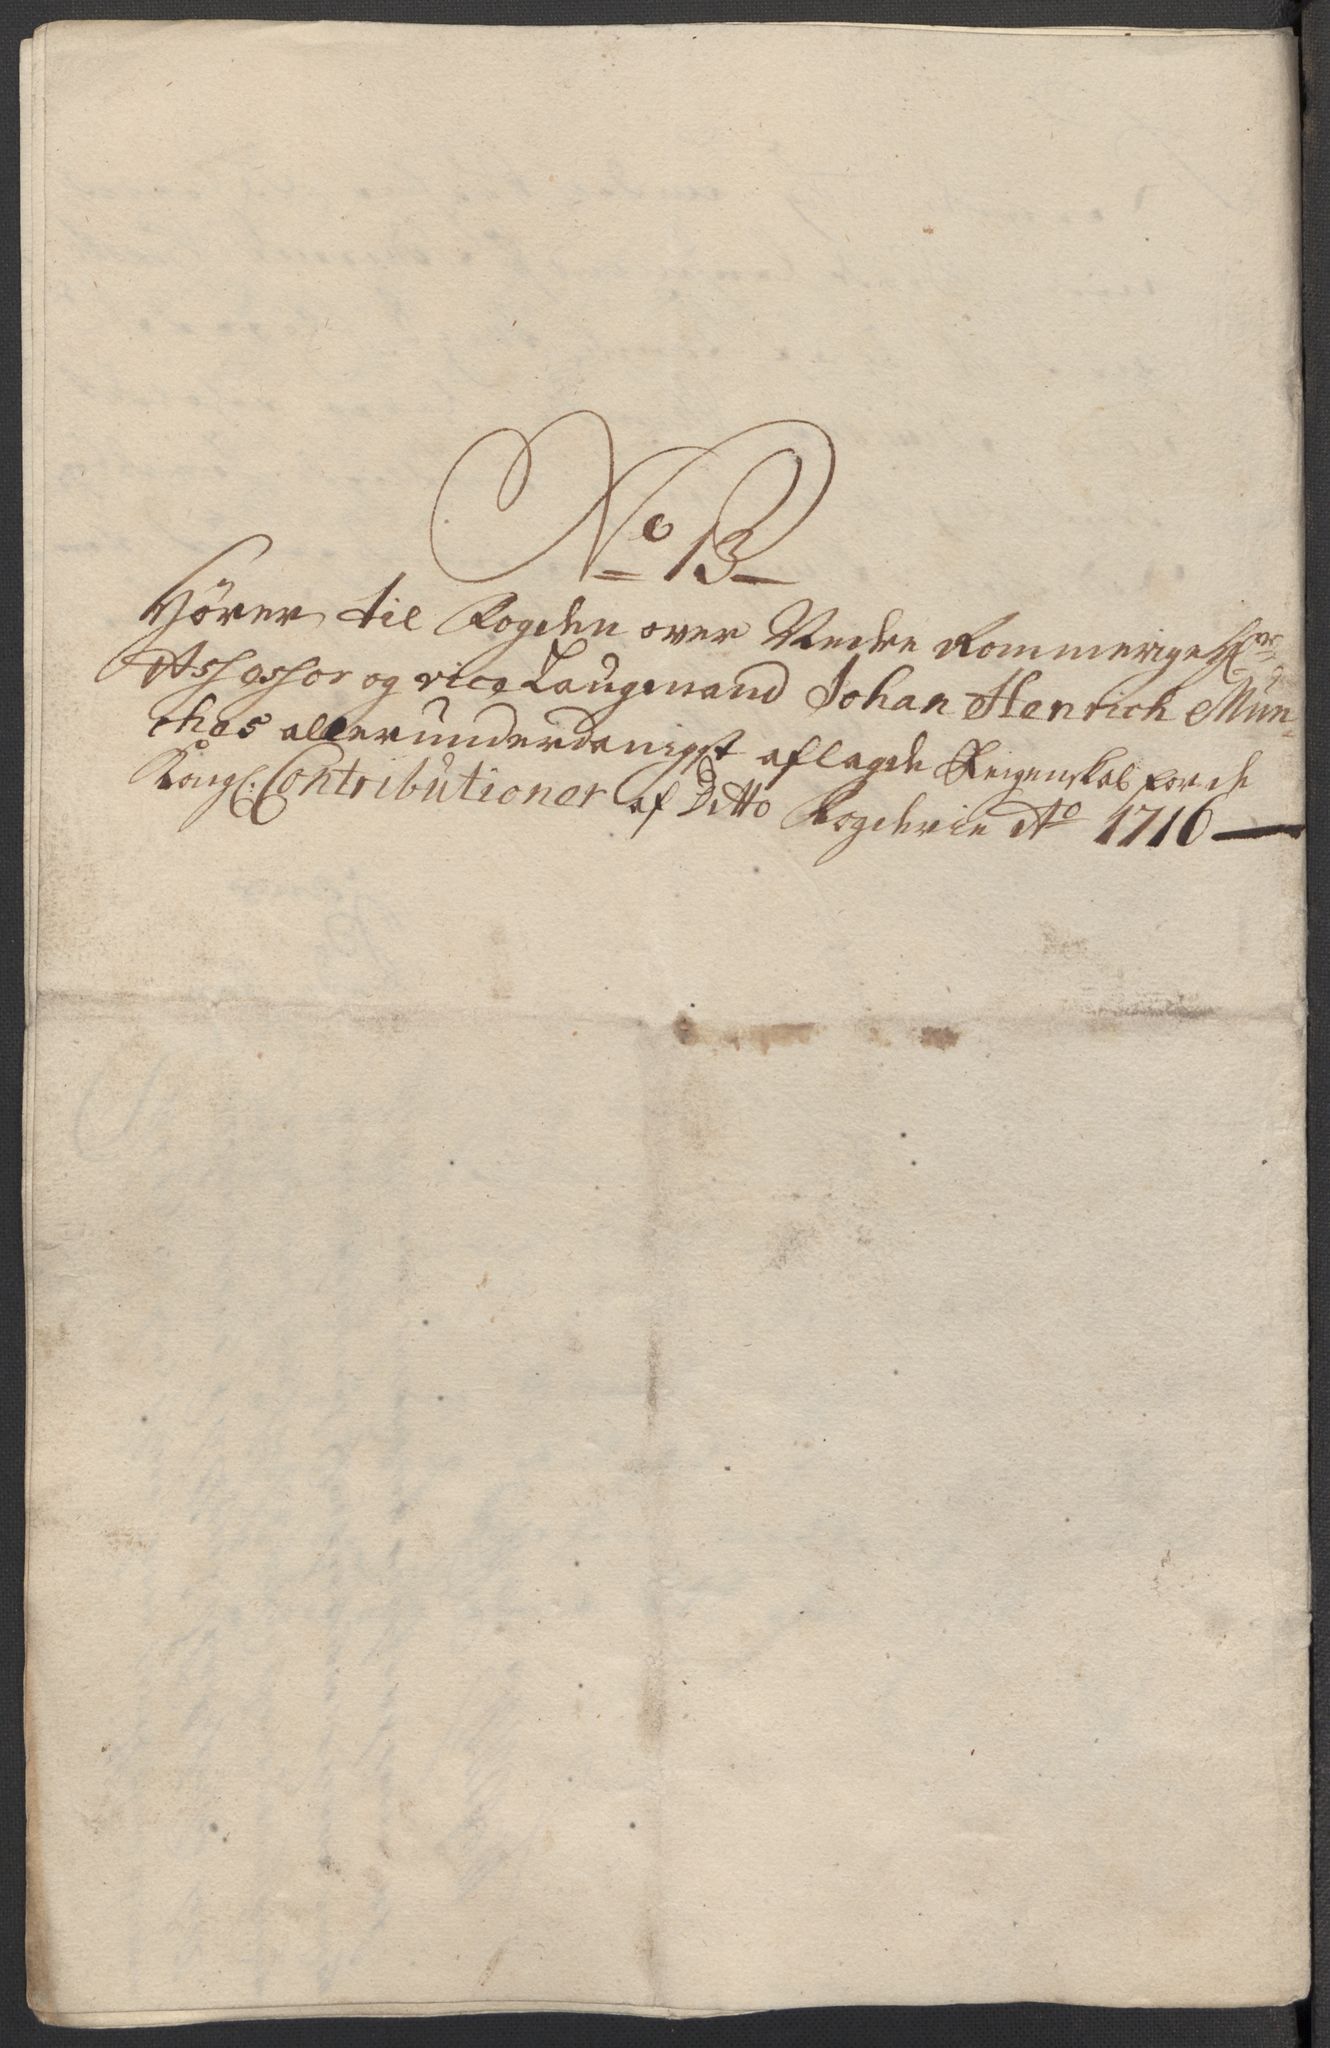 No 13
Hører til Fogden over Nedre Rommerige Hr
Assessor og vice Laugmand Johan Henrich Mün-
ches allerunderdanigst aflagde Reigenskab for de
Kongl: Contributioner af Ditto Fogderie Ao 1716